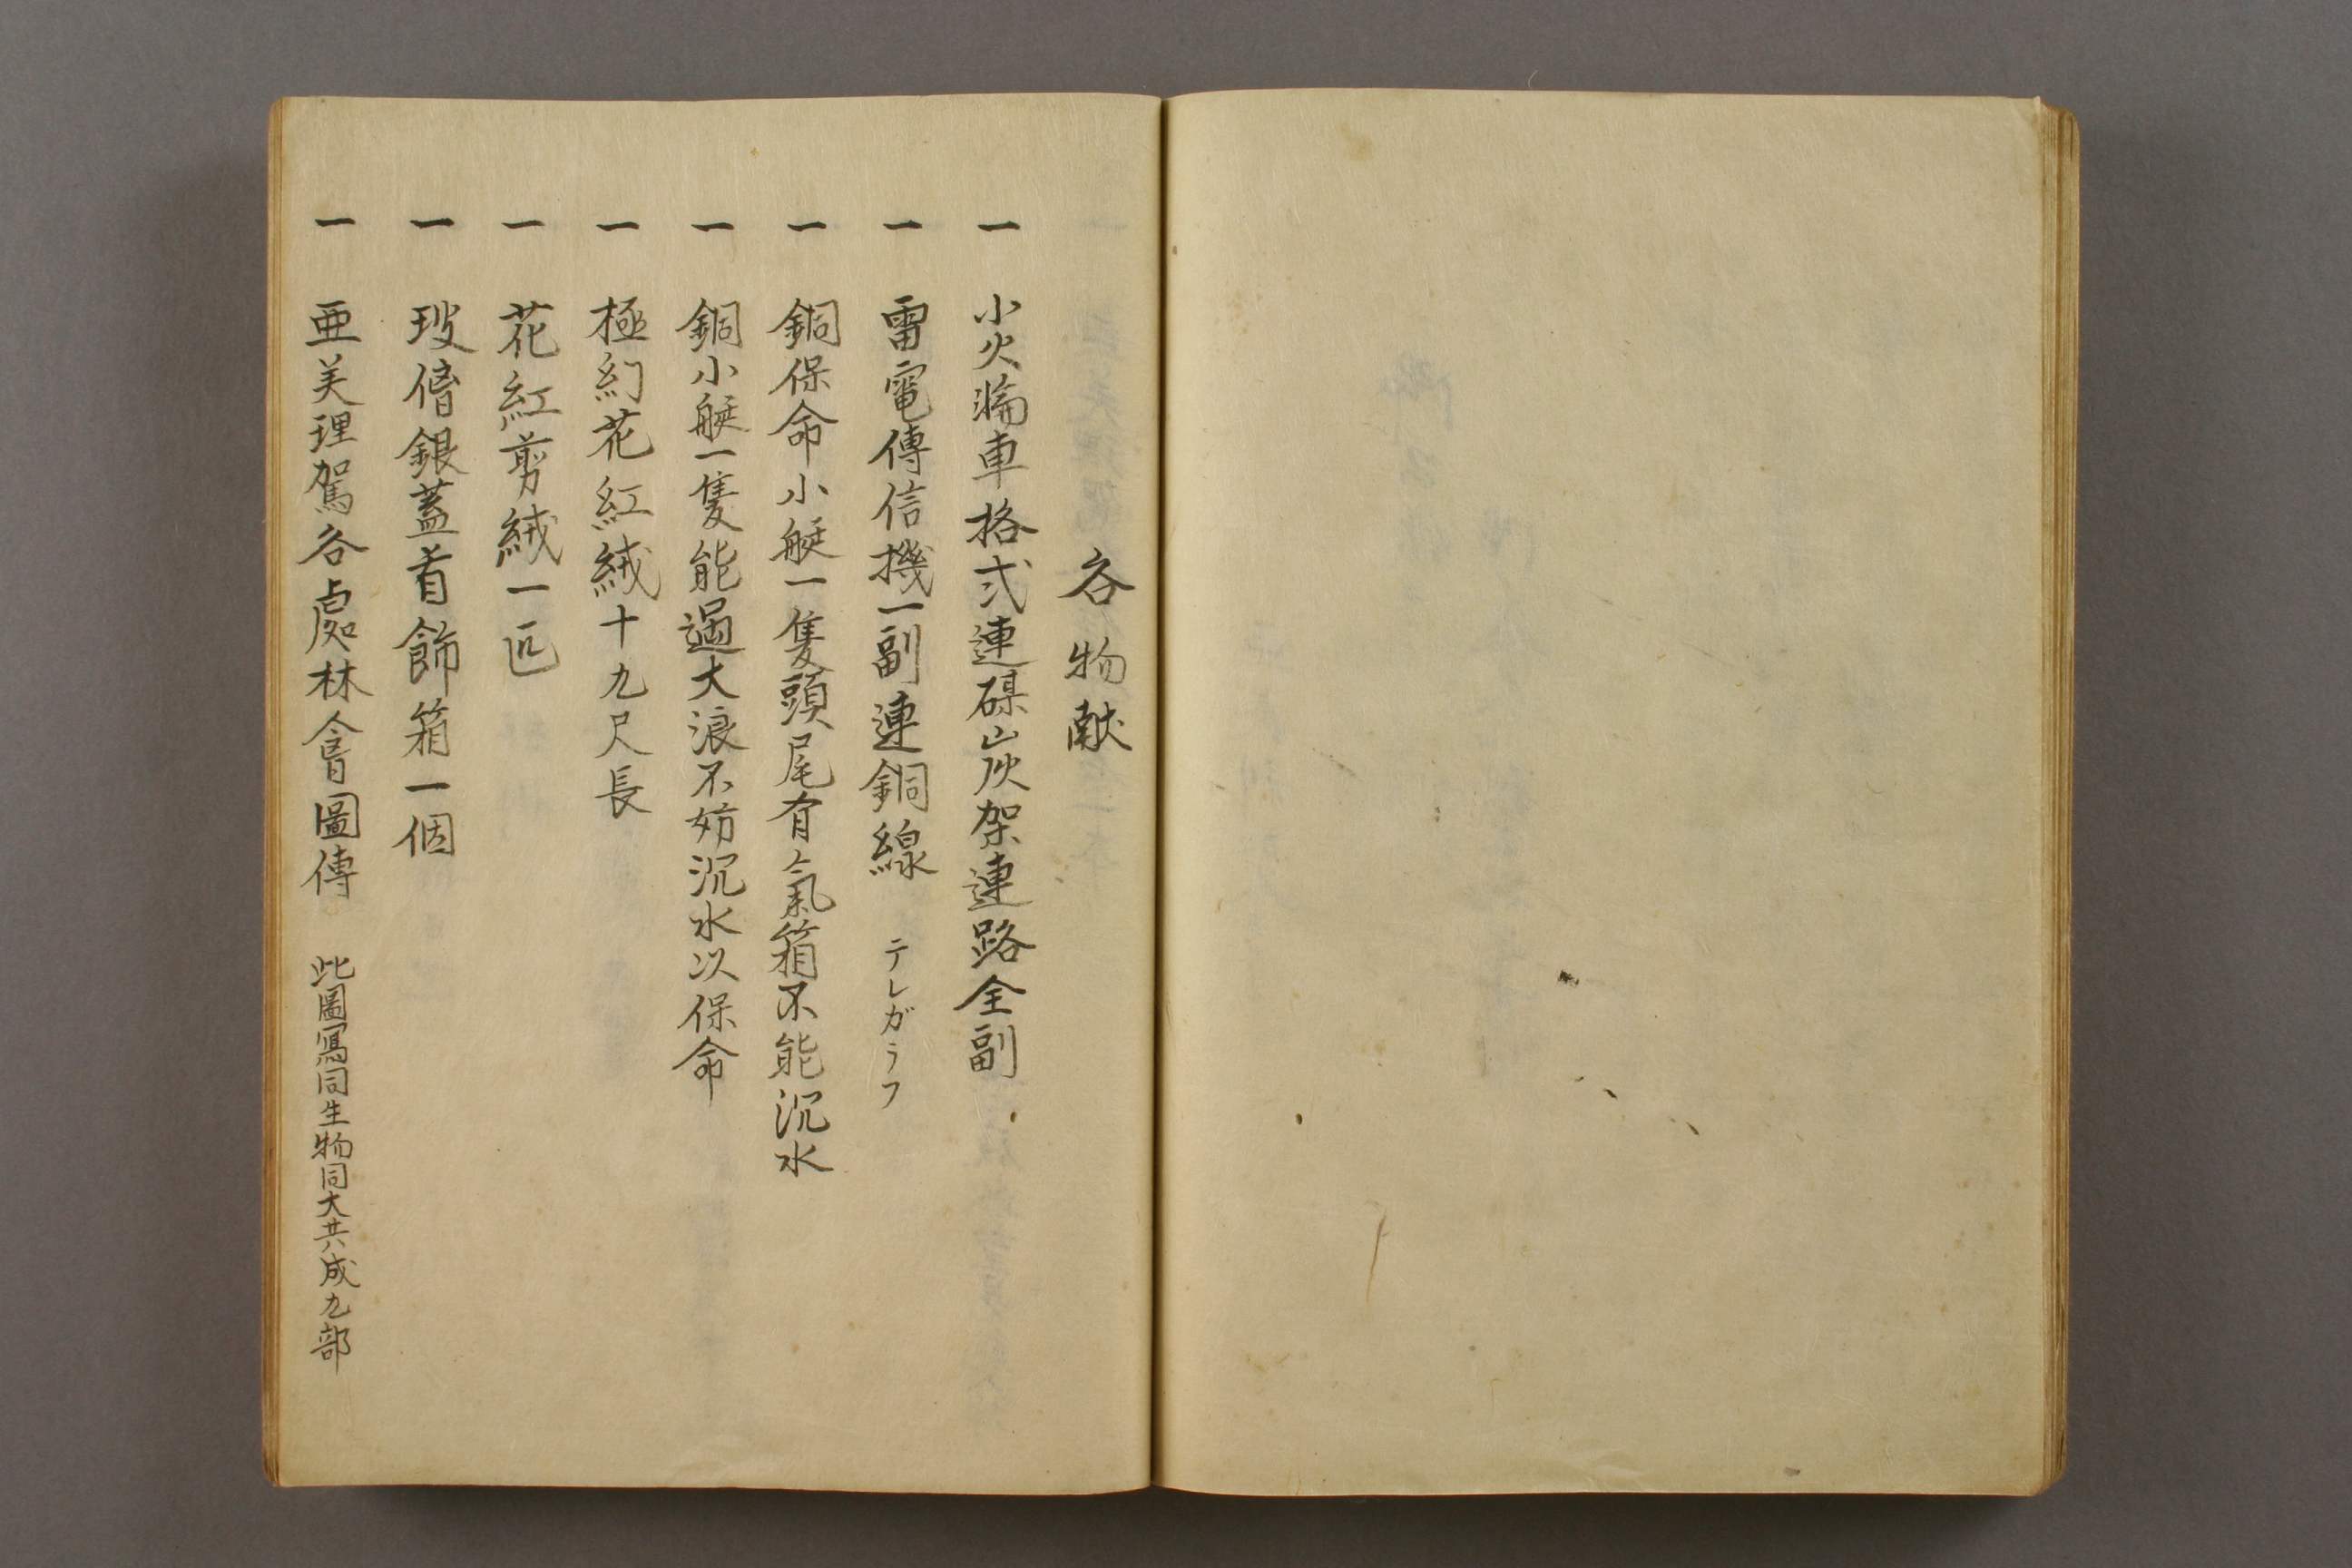 各物献
一 小火輪車格式連磥炭架連路全副
一 雷電傳信機一副連銅線 テレガラフ
一 銅保命小艇一隻頭尾有氣箱不能沉水
一 銅小艇一隻能過大浪不妨沉水以保命
一 極幻花紅絨十九尺長
一 花紅剪絨一匹
一 銀蓋首飾箱一個
一 亜美理駕各處林會圖傳 此圖寫同生物同大共成九部